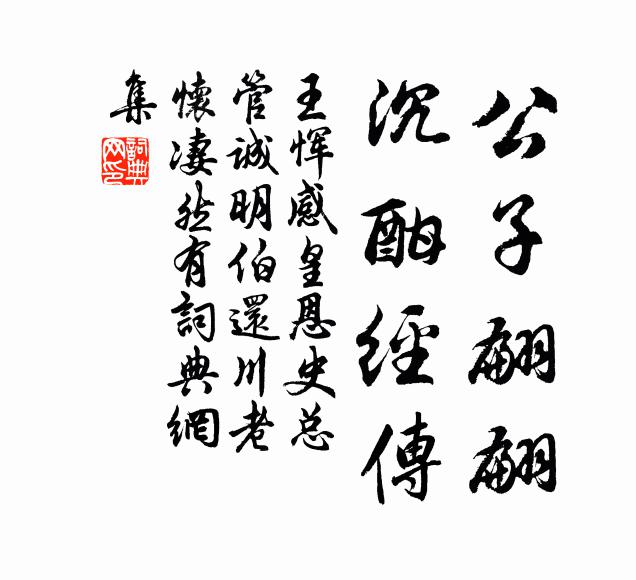 公子翩翩
沉酣經傳
王惲感皇恩史总
管誠明伯還川老
懷凄然有詞典網
集
詞典网印